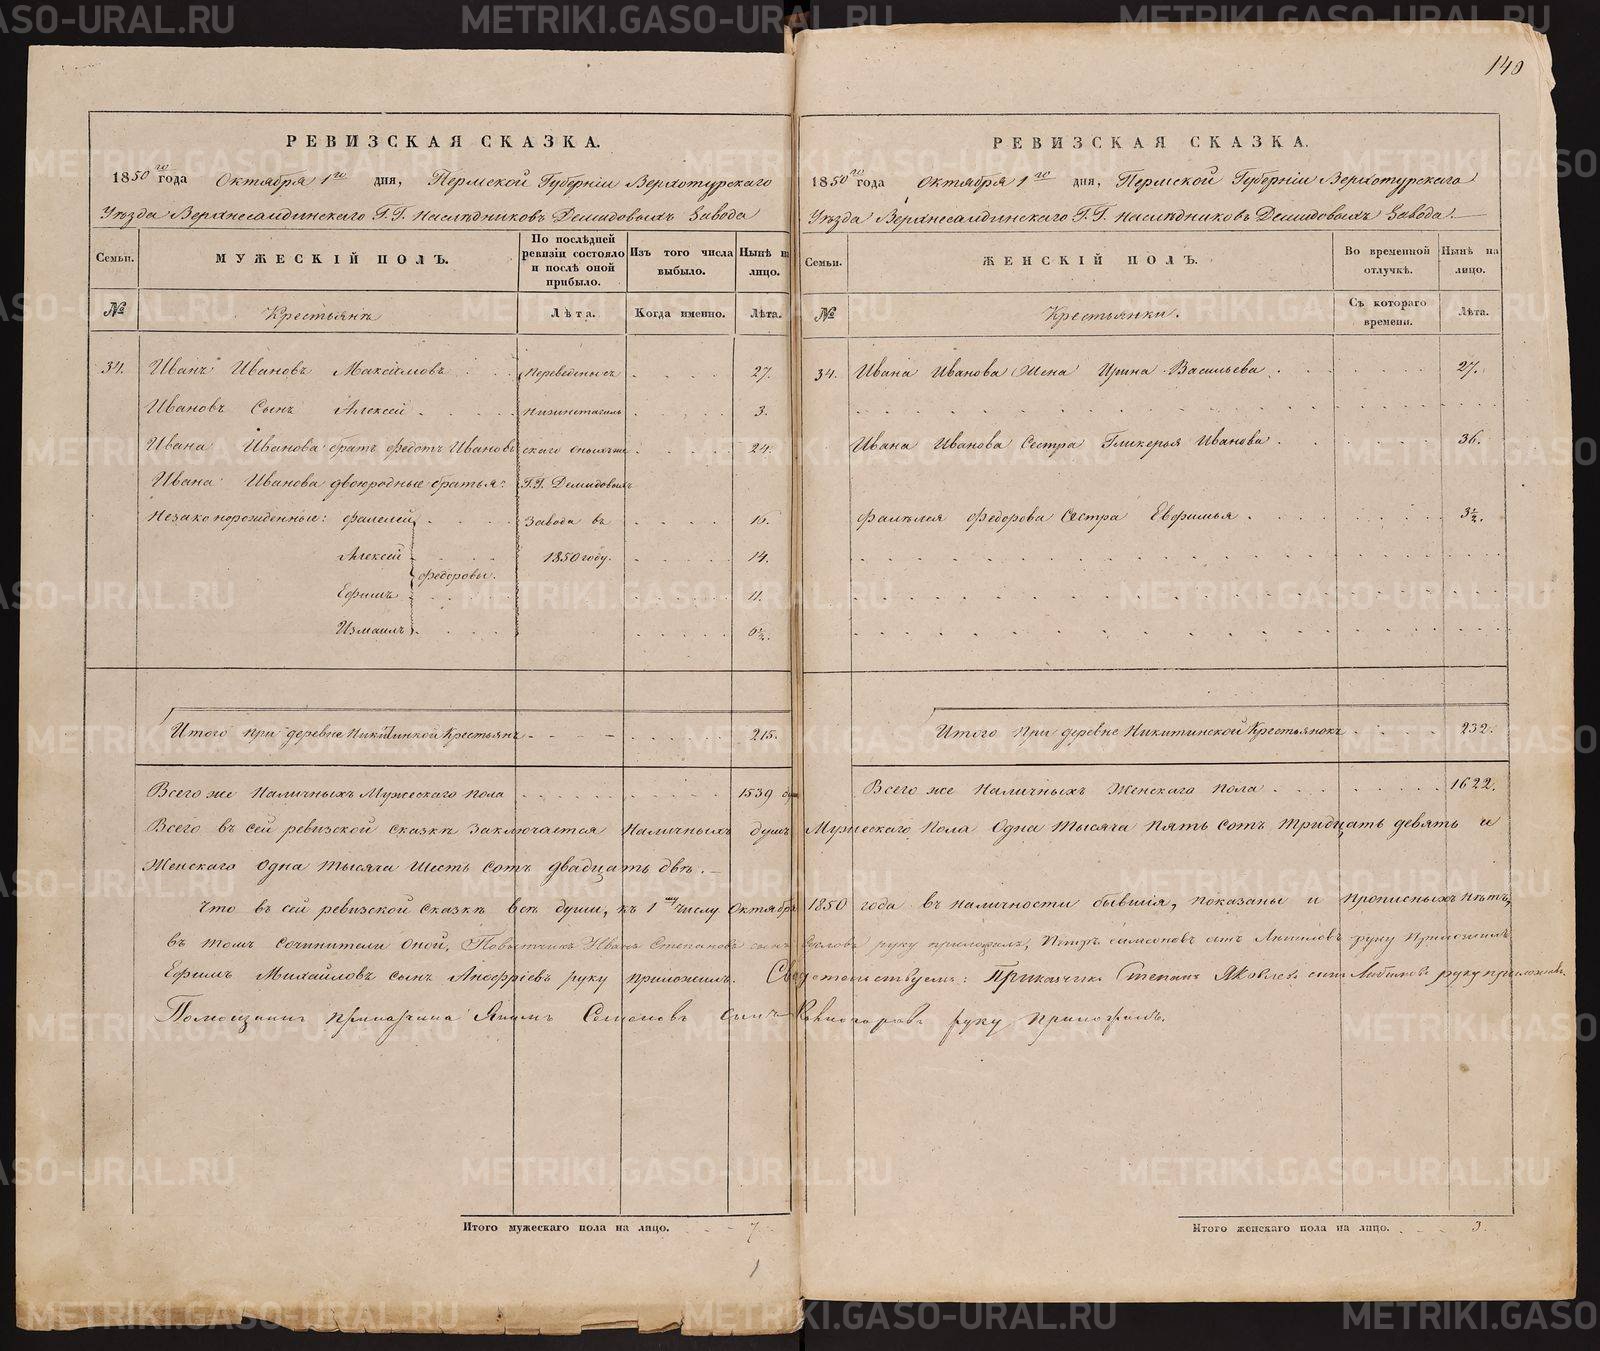 140
РЕВИЗСКАЯ СКАЗКА.
1850го года Октября 1го дня, Пермской Губерніи Верхотурскаго
Уѣзда Верхнесалдинскаго Г.Г. Наслѣдниковъ Демидовыхъ Завода
Семьи.
МУЖЕСКІЙ ПОЛЪ.
По послѣдней ревизіи состояло и послѣ оной прибыло.
Изъ того числа выбыло.
Нынѣ на лицо.
№
Крестьянъ
Лѣта.
Когда именно.
Лѣта.
34. Иванъ Ивановъ Максимовъ Переведены съ 27.
Ивановъ Сынъ Алексей Нижнетагиль 3.
Ивана Иванова братъ Федотъ Ивановъ скаго 24.
Ивана Иванова двоюродные братья: Г.Г. Демидовыхъ
Незаконорожденные: Фалелей Завода въ 16.
Алексей 1850 году. 14.
Федоровы.
Ефимъ 11.
Измаилъ 6½.
Итого при деревне Никитинской Крестьянъ 215.
Всего же Наличныхъ Мужескаго пола 1539
РЕВИЗСКАЯ СКАЗКА.
1850го года Октября 1го дня, Пермской Губерніи Верхотурскаго
Уѣзда Верхнесалдинскаго Г.Г. Наслѣдниковъ Демидовыхъ Завода.
Семьи.
ЖЕНСКІЙ ПОЛЪ.
Во временной отлучкѣ.
Нынѣ на лицо.
№
Крестьянки.
Съ котораго времени.
Лѣта.
34. Ивана Иванова Жена Ирина Васильева 27.
Ивана Иванова Сестра Гликерья Иванова 36.
Фалѣлея Федорова Сестра Евфимья 3½.
Итого при деревне Никитинской Крестьянокъ 232.
Всего же Наличныхъ Женскаго пола 1622.
Всего въ сей ревизской сказкѣ Заключается Наличныхъ душъ Мужескаго Пола Одна тысяча пять сотъ тридцать девять и
Женскаго Одна тысяча шесть сотъ двадцать двѣ.
Что въ сей ревизской сказкѣ всѣ души, къ 1му числу Октября 1850 года въ наличности бывшія, показаны и прописныхъ нѣтъ,
въ томъ сочинители оной, Иванъ Степановъ сынъ руку приложилъ, Петръ сынъ руку приложилъ
Ефимъ Михайловъ сынъ руку приложилъ. Свидетельствуемъ: Приказчикъ Степанъ Яковлевъ сынъ руку приложилъ.
Помощникъ прикащика Якимъ Семеновъ сынъ руку приложилъ.
Итого мужескаго пола на лицо. 7
Итого женскаго пола на лицо. 3.
METRIKI.GASO-URAL.RU